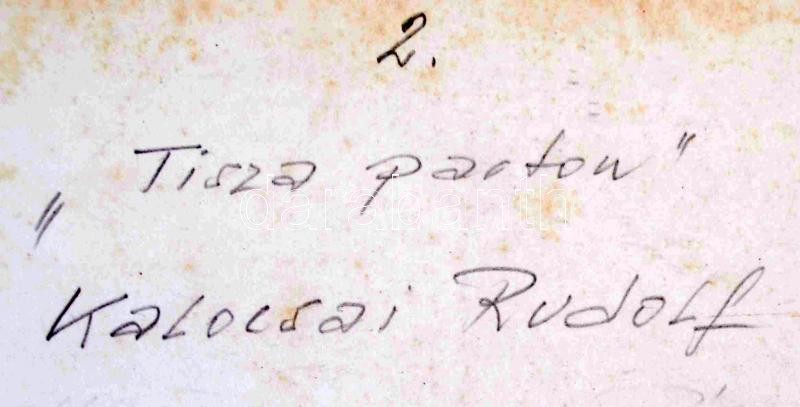 2.
„Tisza parton"
Kalocsai Rudolf
darabanth